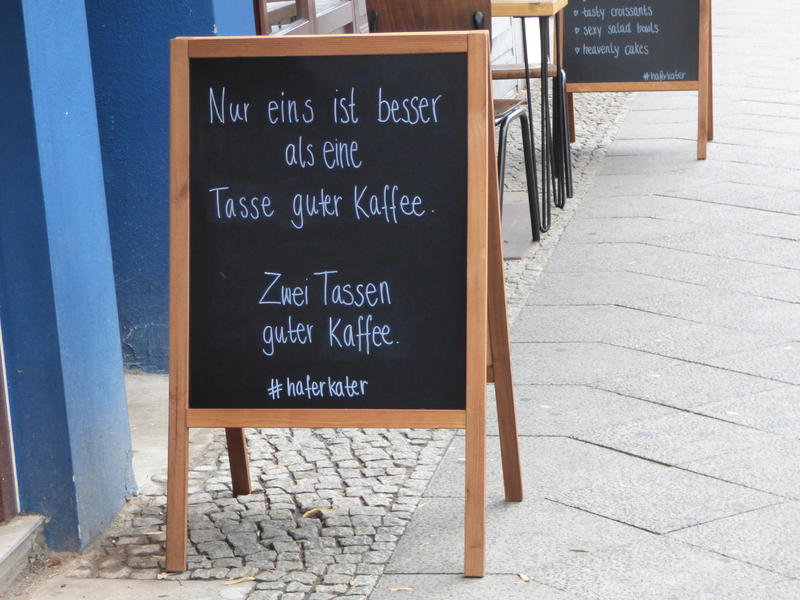 Nur eins ist besser
als eine
Tasse guter Kaffee.
Zwei Tassen
guter Kaffee.
#haferkater
♡ tasty croissants
♡ sexy salad bowls
♡ heavenly cakes
#haferkater